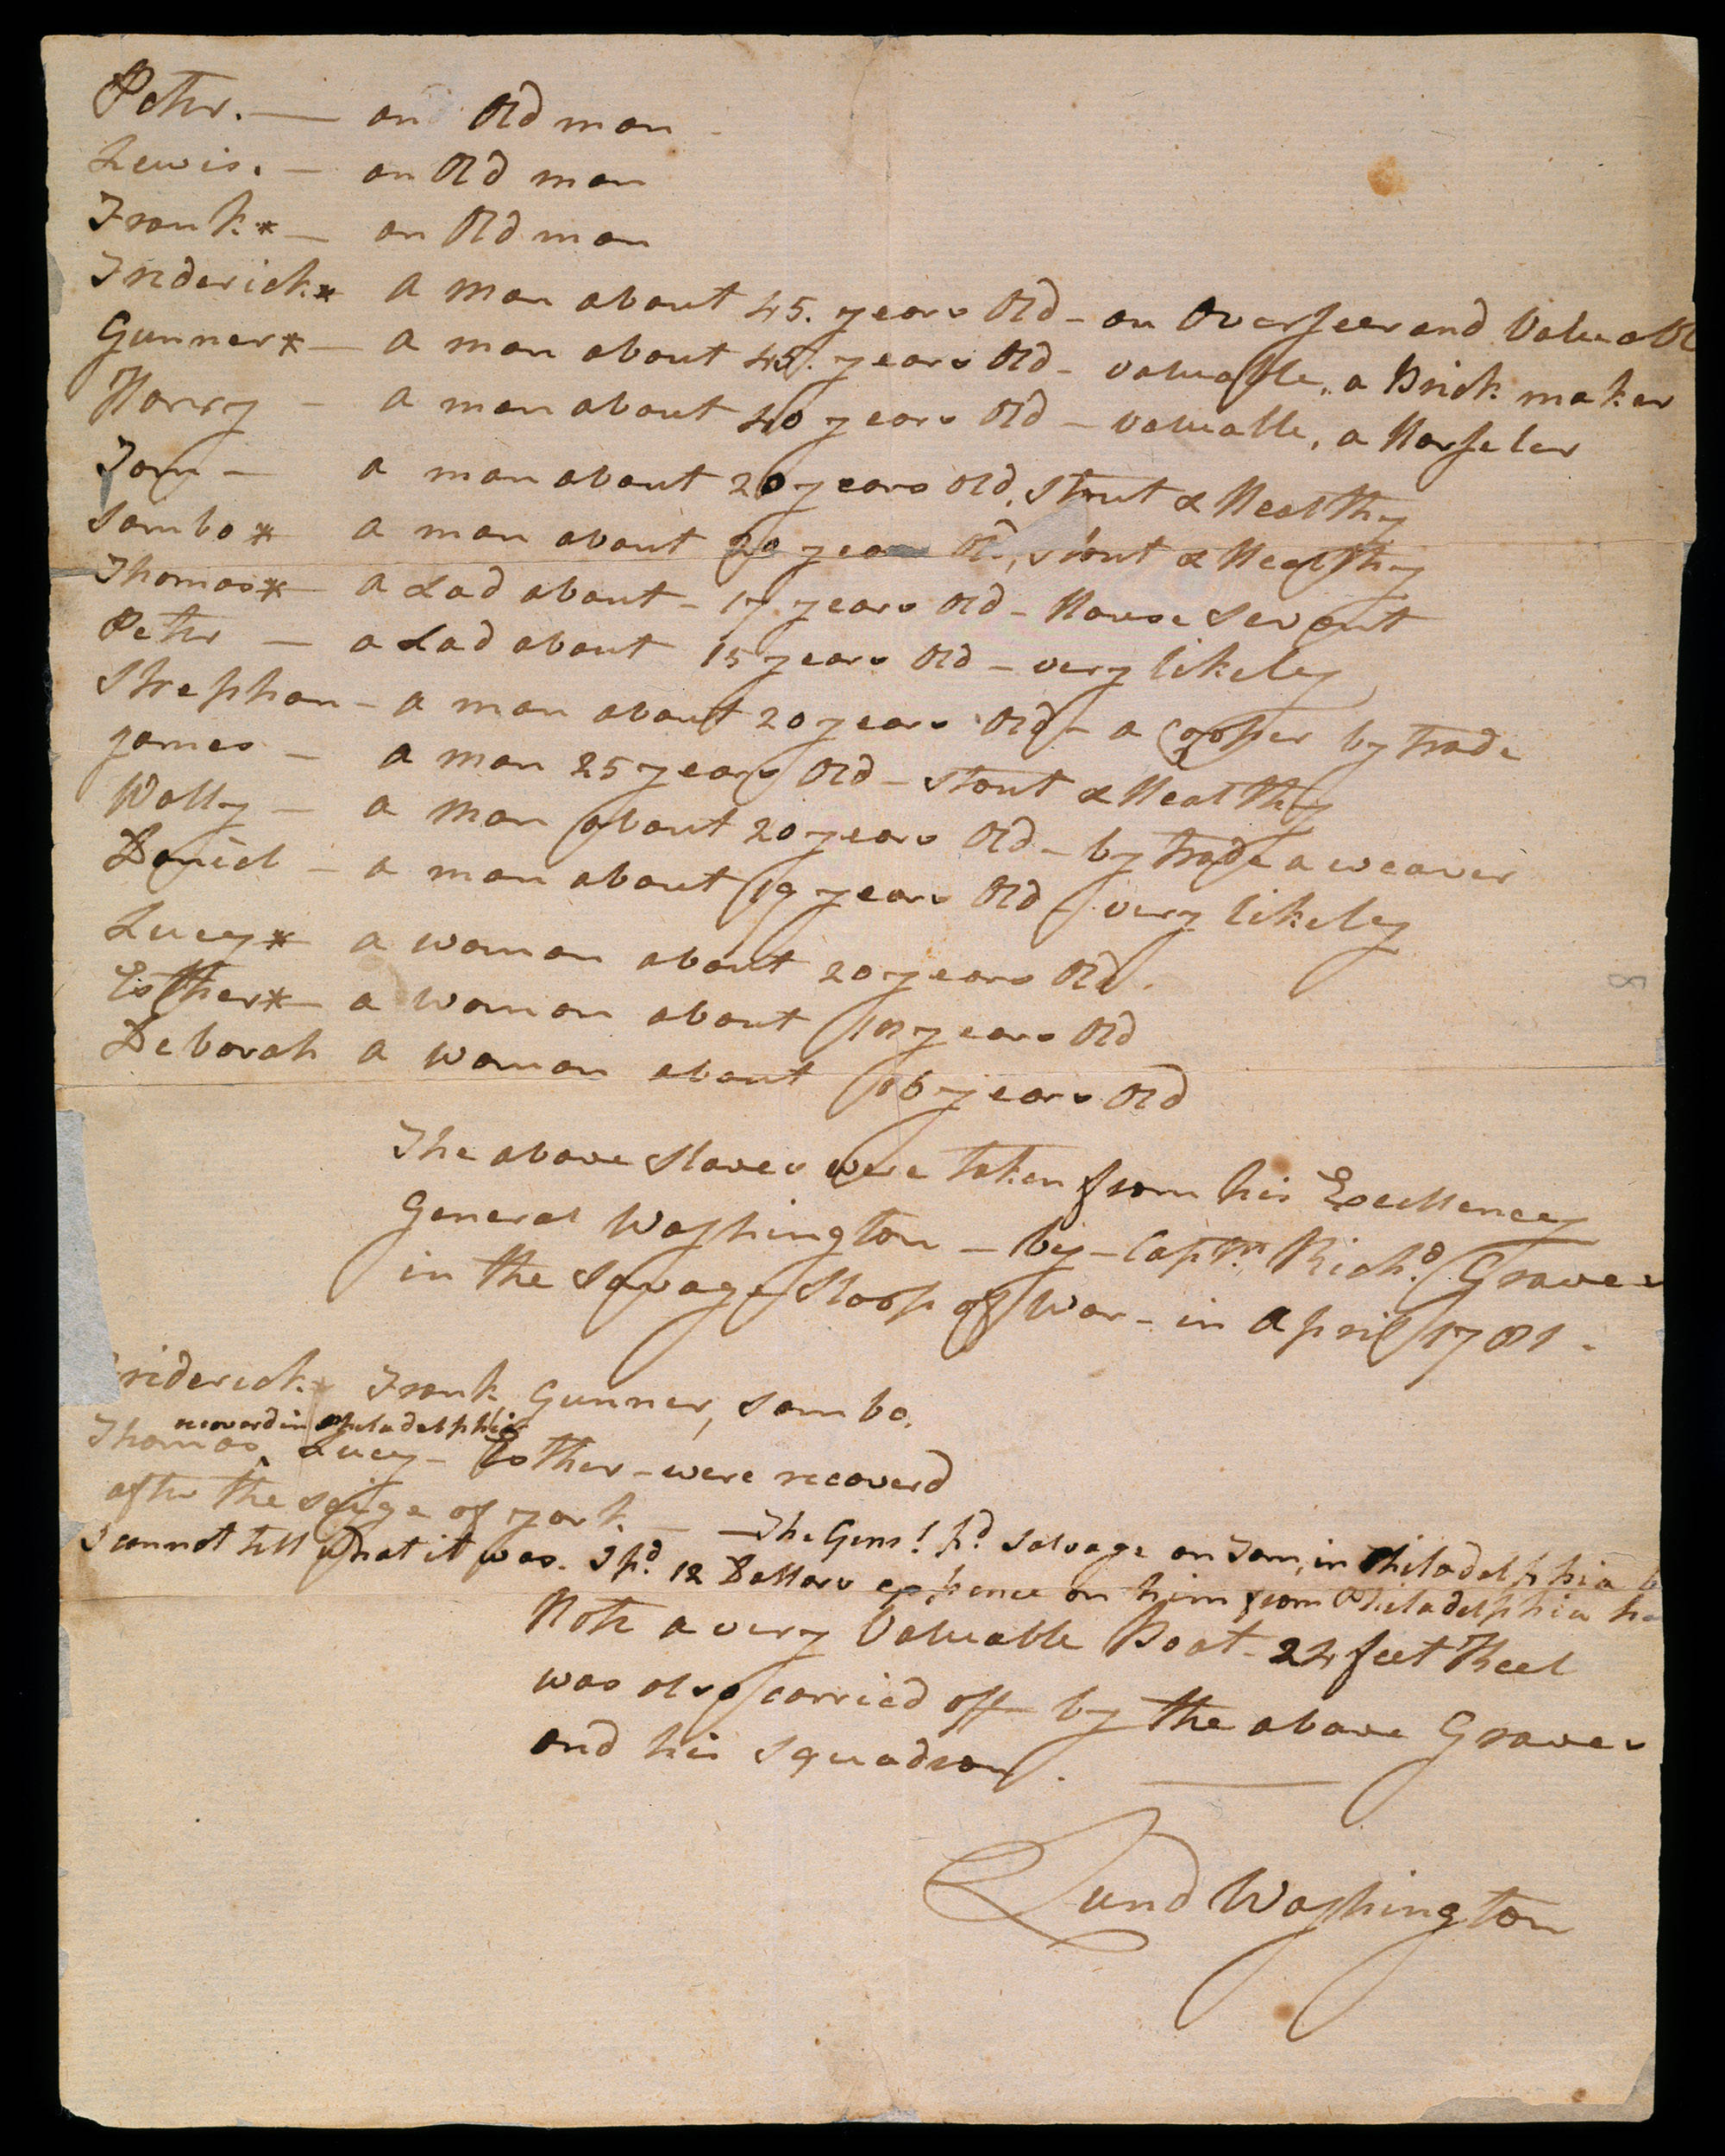 Peter. — an Old man -
Lewis. — an Old man
Frank * — an Old man
Frederick * A man about 45. years Old - an Overseer and Valuable
Gunner * — A man about 45. years Old - valuable, a Brick maker
Harry — a man about 40 years Old - valuable, a Horseler
Tom — a man about 20 years Old, stout & Healthy
Sambo * a man about 20 years Old, stout & Healthy
Thomas * — a Lad about - 17 years Old - House Servant
Peter — a Lad about 15 years Old - very likeley
Strephon - a man about 20 years Old - a Cooper by trade
James — a man 25 years Old - stout & Healthy
Wally — a man about 20 years Old - by trade a weaver
Daniel — a man about 19 years Old - very likeley
Lucy * a woman about 20 years Old.
Esther * — a woman about 18 years Old
Deborah a woman about 16 years Old
The above Slaves were taken from his Excellency
General Washington — by — Captn. Richd. Graves
in the Savage Sloop of War - in April 1781.
riderick Frank, Gunner, Sambo.
recoverd in Philadelphia
Thomas ^ Lucy - Esther - were recoverd
after the seige of york. — — The Genl. pd. salvage on Tom, in Philadelphia
I cannot tell what it was. I pd. 12 Dollars expence on him from Philadelphia
Note a very Valuable Boat - 24 feet Keel
was also carried off by the above Graves
and his squadron.
Lund Washington